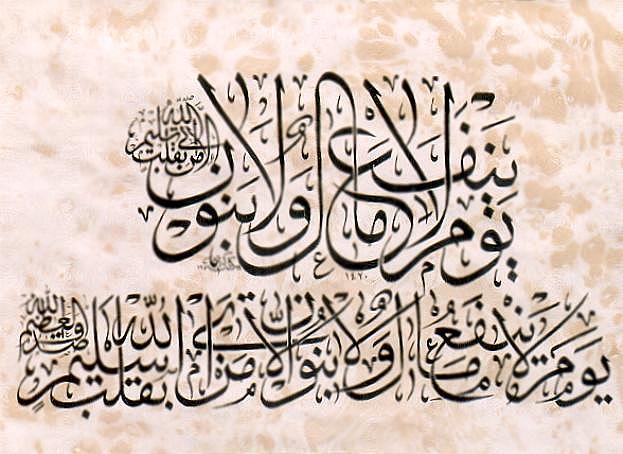 يوم لا ينفع مال ولا بنون
إلا من أتى الله بقلب سليم
١٤٢٠
يوم لا ينفع مال ولا بنون إلا من أتى الله بقلب سليم